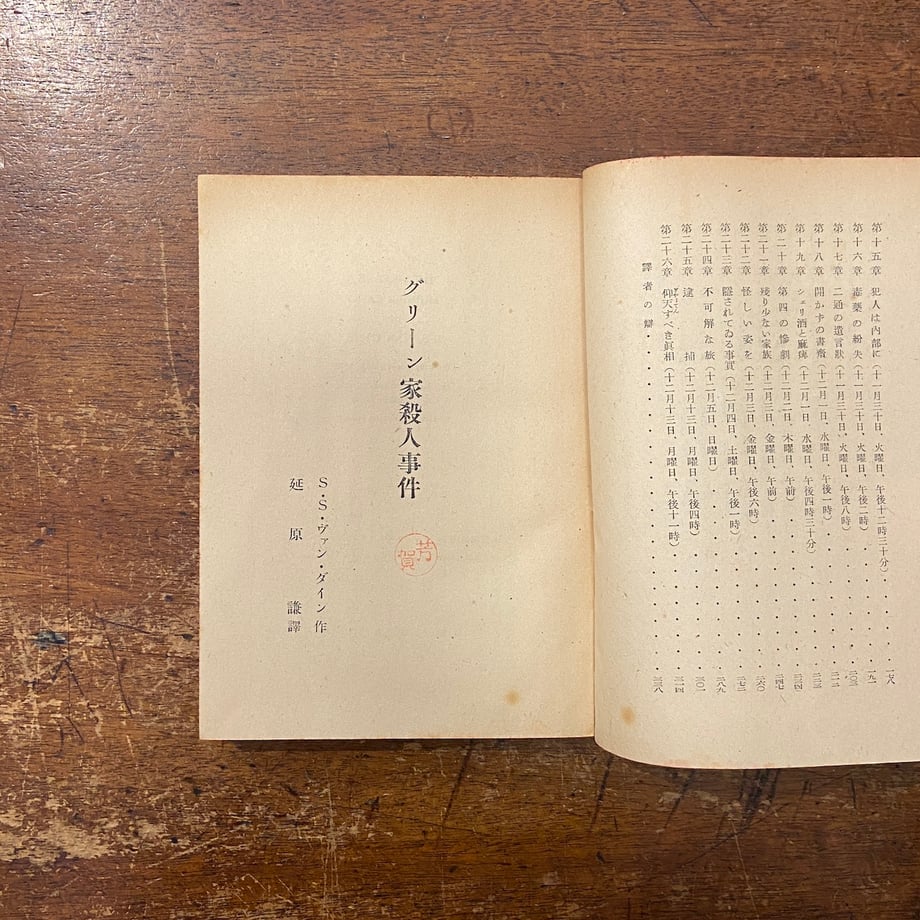 第十五章 犯人は内部に(十一月三十日、火曜日、午後十二時三十分)・・・・・一七八
第十六章 毒藥の紛失(十一月三十日、火曜日、午後二時)・・・・・・・一九一
第十七章 二通の遺言狀(十一月三十日、火曜日、午後八時)・・・・・・・
第十八章 開かずの書齋(十二月一日、水曜日、午後一時)・・・・・・・
第十九章 シェリ酒と麻痺(十二月一日、水曜日、午後四時三十分)・・・・・二三四
第二十章 第四の慘劇(十二月二日、木曜日、午前)・・・・・・・・二四七
第二十一章 殘り少ない家族(十二月三日、金曜日、午前)・・・・・・・・二六〇
第二十二章 怪しい姿を(十二月三日、金曜日、午後六時)・・・・・・・
第二十三章 隱されてゐる事實(十二月四日、土曜日、午後一時)・・・・・・・二八九
第二十四章 不可解な旅(十二月五日、日曜日)・・・・・・・・・
第二十五章 逮捕(十二月十三日、月曜日、午後四時)・・・・・・三〇一
第二十六章 仰天すべき眞相(十二月十三日、月曜日、午後十一時)・・・・・・三一四
譯者の辯・・・・・・・・・・・・・・・・
グリーン家殺人事件
S・S・ヴァン・ダイン作
延原謙譯
芳賀